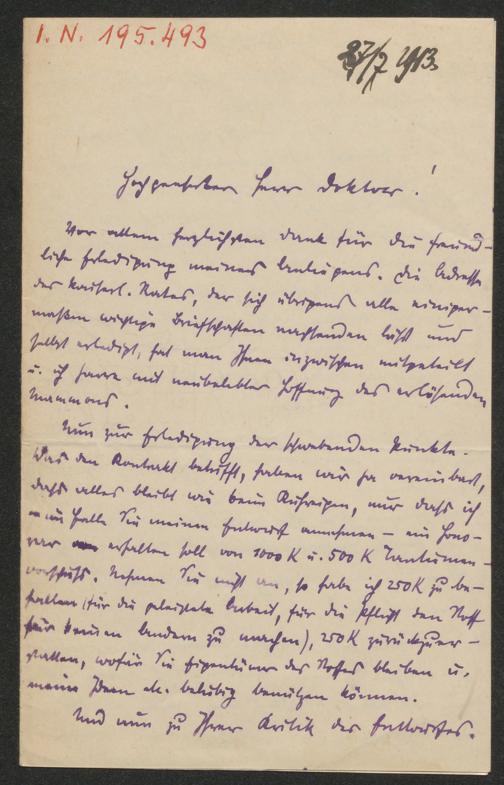 I. N. 195.493
27/7 1913
Hochgeehrter Herr Doktor!
Vor allem herzlichsten Dank für die freund-
liche Erledigung meines Anliegens. Die Adresse
des kaiserl. Rates, der sich übrigens alle einiger-
maßen wichtige Briefschaften nachsenden läßt und
selbst erledigt, hat man Ihnen inzwischen mitgeteilt
u. ich harre mit neubelebter Hoffnung des erlösenden
Mammons.
Nun zur Erledigung der schwebenden Punkte.
Was den Kontrakt betrifft, haben wir ja vereinbart,
dass alles bleibt wie beim, nur dass ich
– im Falle Sie meinen Entwurf annehmen – ein Hono-
rar erhalten soll von 1000 K u. 500 K Tantiemen-
vorschuss. Nehmen Sie nicht an, so habe ich 250 K zu be-
halten (für die geleistete Arbeit, für die Pflicht den Stoff
keinen andern zu machen), 250 K zurückzuer-
statten, wofür Sie Eigentümer des Stoffes bleiben u.
meine Ideen etc. beliebig benützen können.
Und nun zu Ihrer Kritik des Entwurfes.